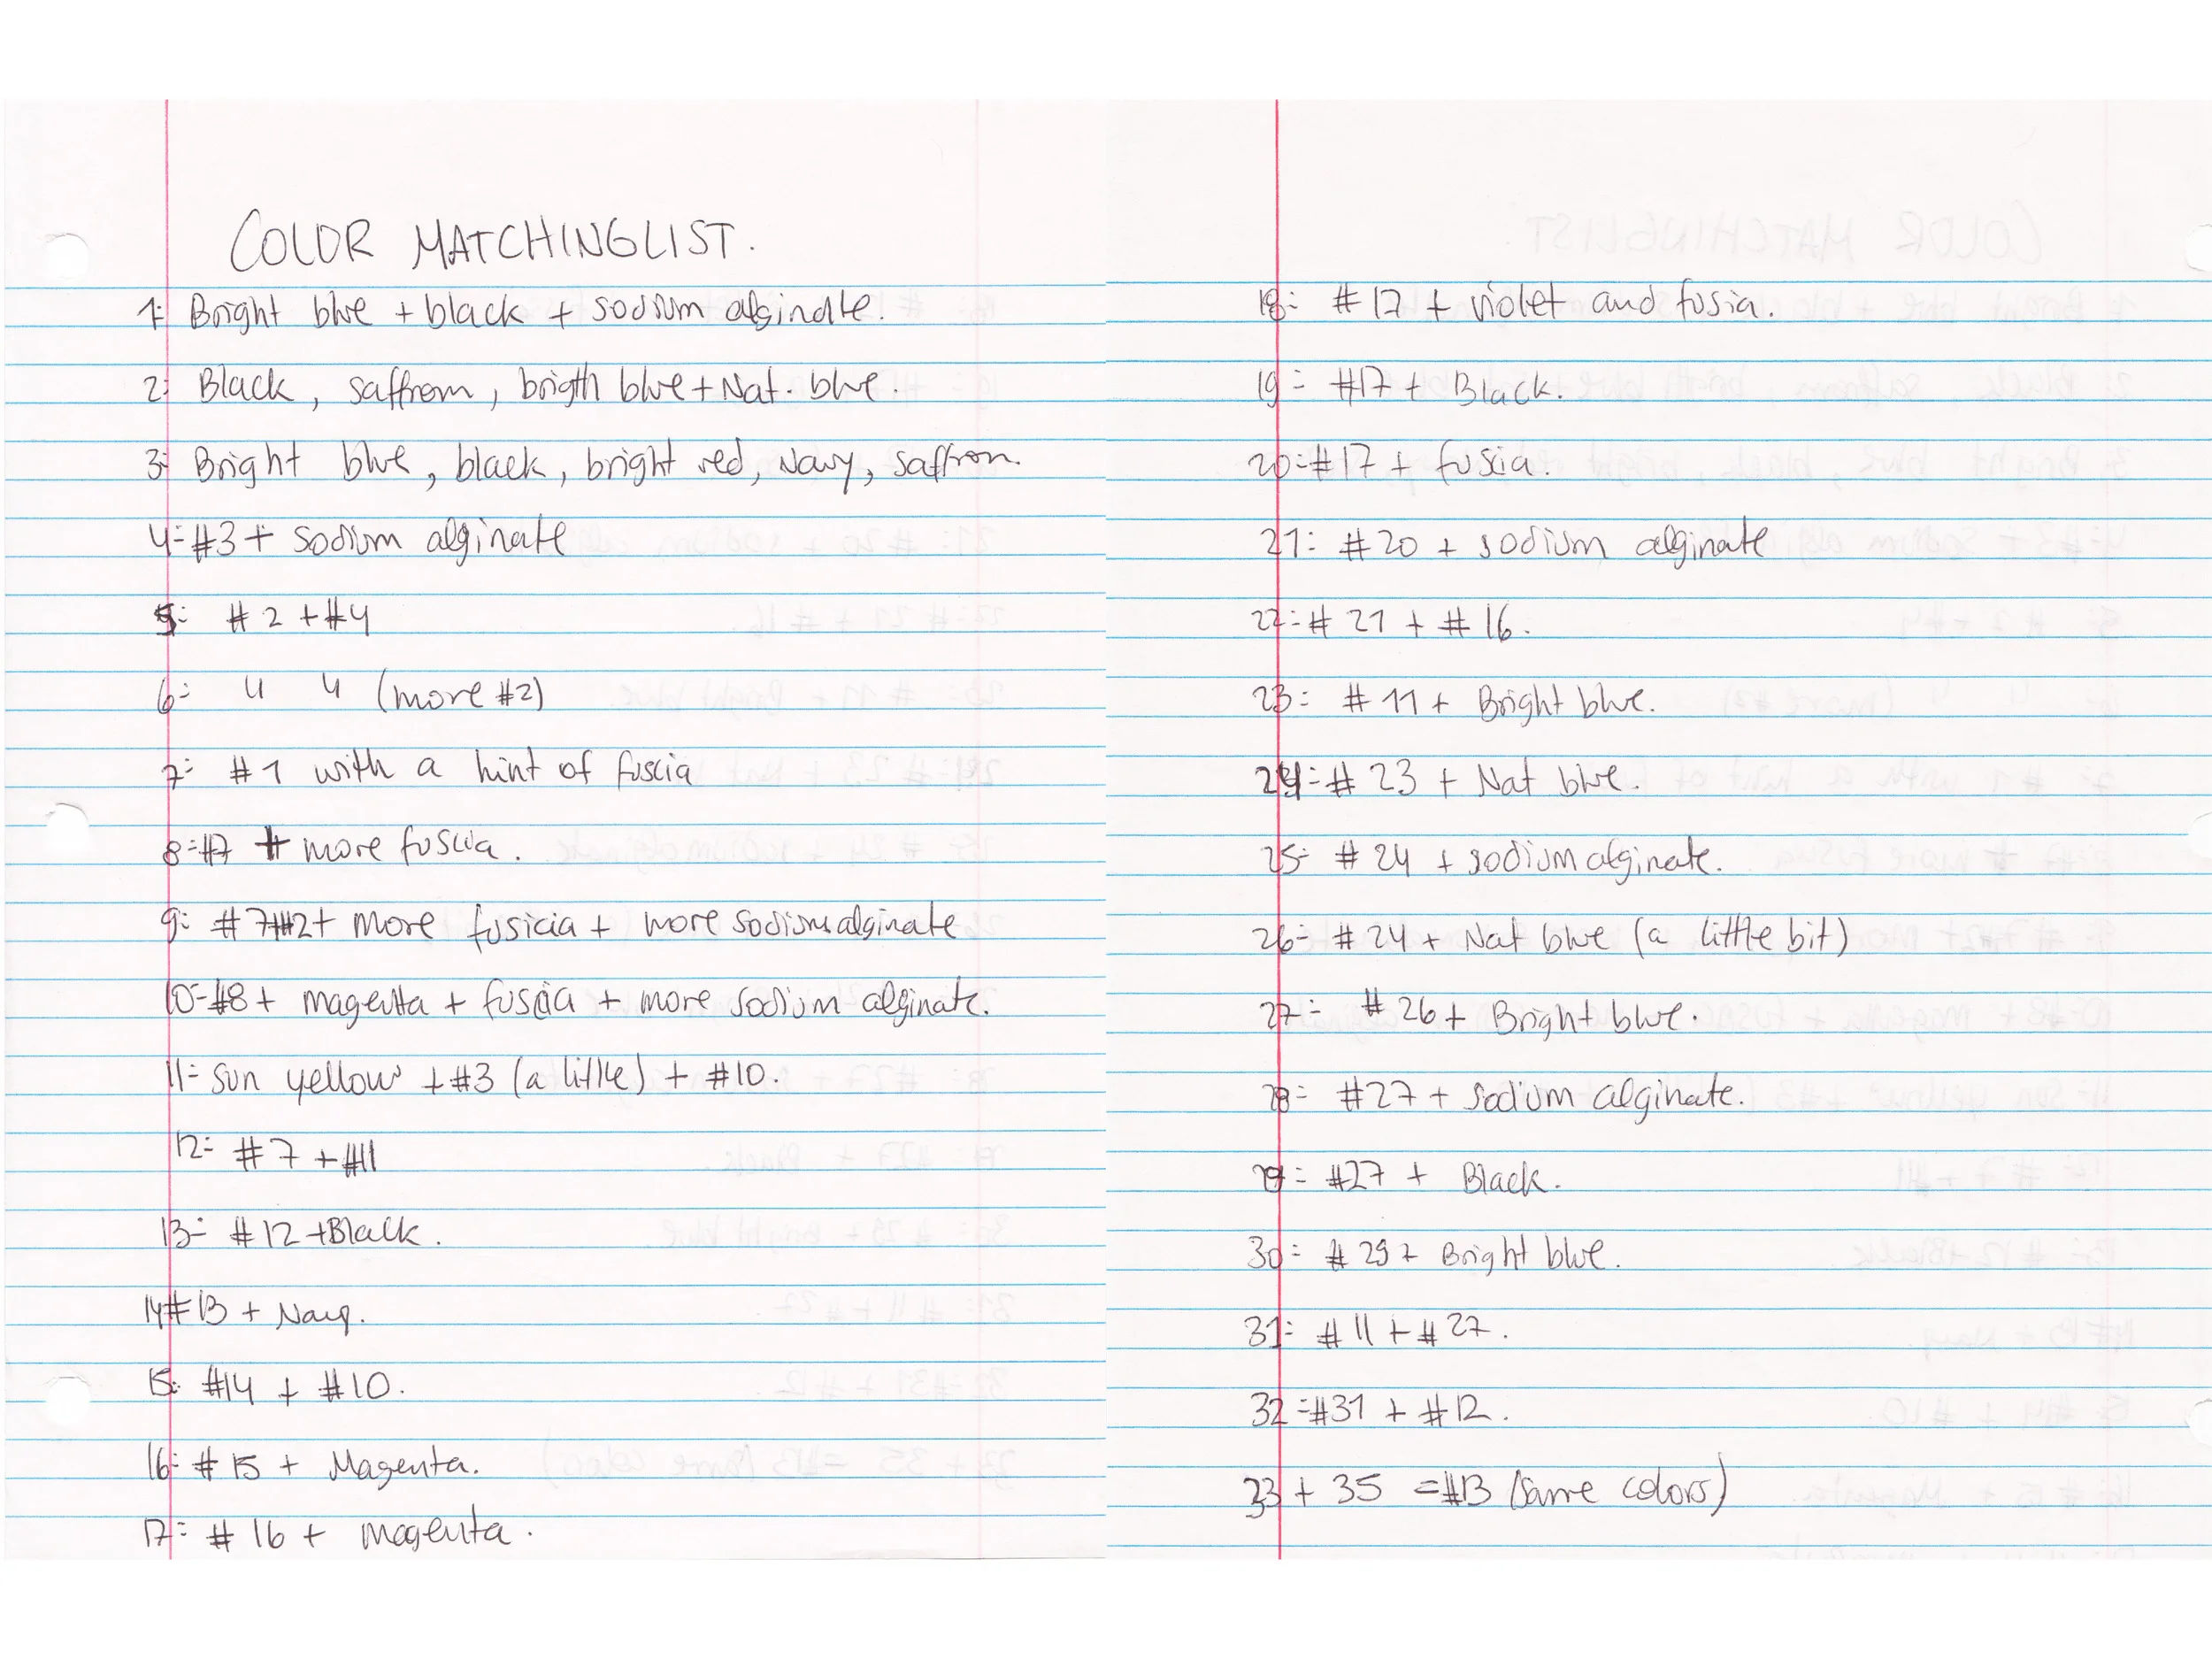 COLOR MATCHINGLIST.
1: Bright blue + black + sodium alginate.
2: Black, saffrom, brigth blue + Nat. blue.
3: Bright blue, black, bright red, Navy, saffron.
4: #3 + sodium alginate
5: #2 + #4
6: " " (more #2)
7: #1 with a hint of fuscia
8: #7 + more fuscia.
9: #7+#2+ more fusicia + more sodium alginate
10: #8 + magenta + fuscia + more sodium alginate.
11: sun yellow + #3 (a little) + #10.
12: #7 + #11
13: #12 + Black.
14: #13 + Navy.
15: #14 + #10.
16: #15 + Magenta.
17: #16 + magenta.
18: #17 + violet and fusia.
19: #17 + Black.
20: #17 + fuscia.
21: #20 + sodium alginate
22: #21 + #16.
23: #11 + Bright blue.
24: #23 + Nat blue.
25: #24 + sodium alginate.
26: #24 + Nat blue (a little bit)
27: #26 + Bright blue.
28: #27 + sodium alginate.
29: #27 + Black.
30: #29 + Bright blue.
31: #11 + #27.
32: #31 + #12.
33 + 35 = #13 (same colors)